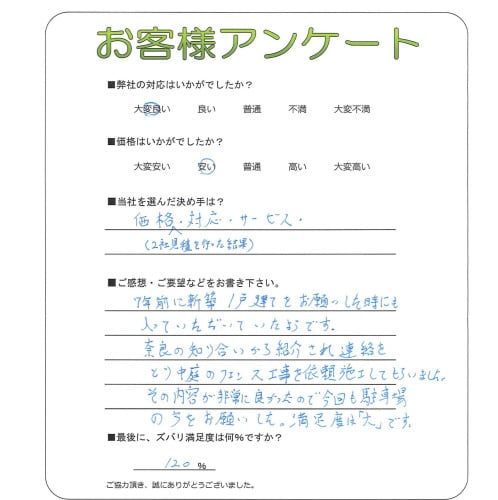 お客様アンケート
■弊社の対応はいかがでしたか?
大変良い 良い 普通 不満 大変不満
■価格はいかがでしたか?
大変安い 安い 普通 高い 大変高い
■当社を選んだ決め手は?
価格・対応・サービス・
(2社見積を行った結果)
■ご感想・ご要望などをお書き下さい。
7年前に新築 1戸建てをお願いした時にも
入っていただいていたようです。
奈良の知り合いから紹介され連絡を
とり中庭のフェンス工事を依頼施工してもらいました。
その内容が非常に良かったので今回も駐車場
の方をお願いした。満足度は「大」です。
■最後に、ズバリ満足度は何%ですか?
120 %
ご協力頂き、誠にありがとうございました。